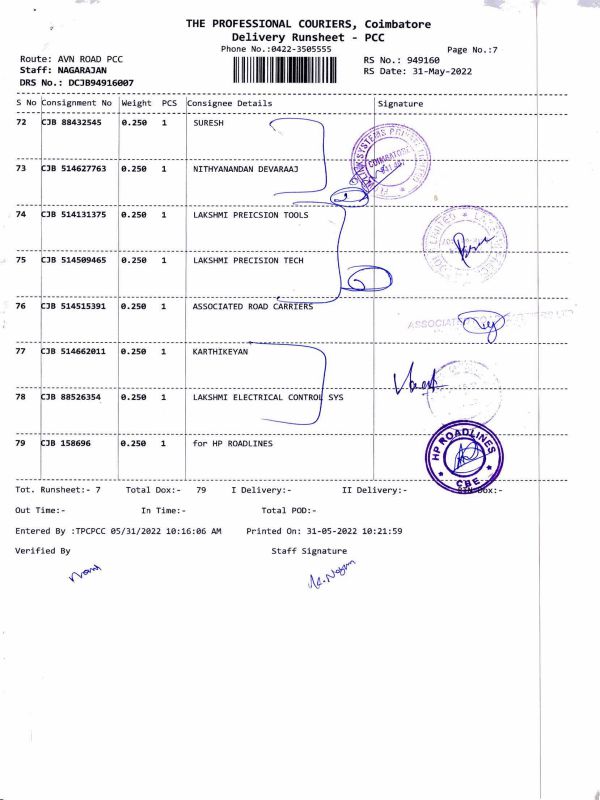 THE PROFESSIONAL COURIERS, Coimbatore
Delivery Runsheet - PCC
Phone No.:0422-3505555
Page No.:7
Route: AVN ROAD PCC
RS No.: 949160
Staff: NAGARAJAN
RS Date: 31-May-2022
DRS No.: DCJB94916007
S No Consignment No Weight PCS Consignee Details Signature
72 CJB 88432545 0.250 1 SURESH
73 CJB 514627763 0.250 1 NITHYANANDAN DEVARAAJ
74 CJB 514131375 0.250 1 LAKSHMI PREICSION TOOLS
75 CJB 514509465 0.250 1 LAKSHMI PRECISION TECH
76 CJB 514515391 0.250 1 ASSOCIATED ROAD CARRIERS
77 CJB 514662011 0.250 1 KARTHIKEYAN
78 CJB 88526354 0.250 1 LAKSHMI ELECTRICAL CONTROL SYS
79 CJB 158696 0.250 1 for HP ROADLINES
HP ROADLINES
CBE
Tot. Runsheet:- 7 Total Dox:- 79 I Delivery:- II Delivery:-
Out Time:- In Time:- Total POD:-
Entered By :TPCPCC 05/31/2022 10:16:06 AM Printed On: 31-05-2022 10:21:59
Verified By Staff Signature